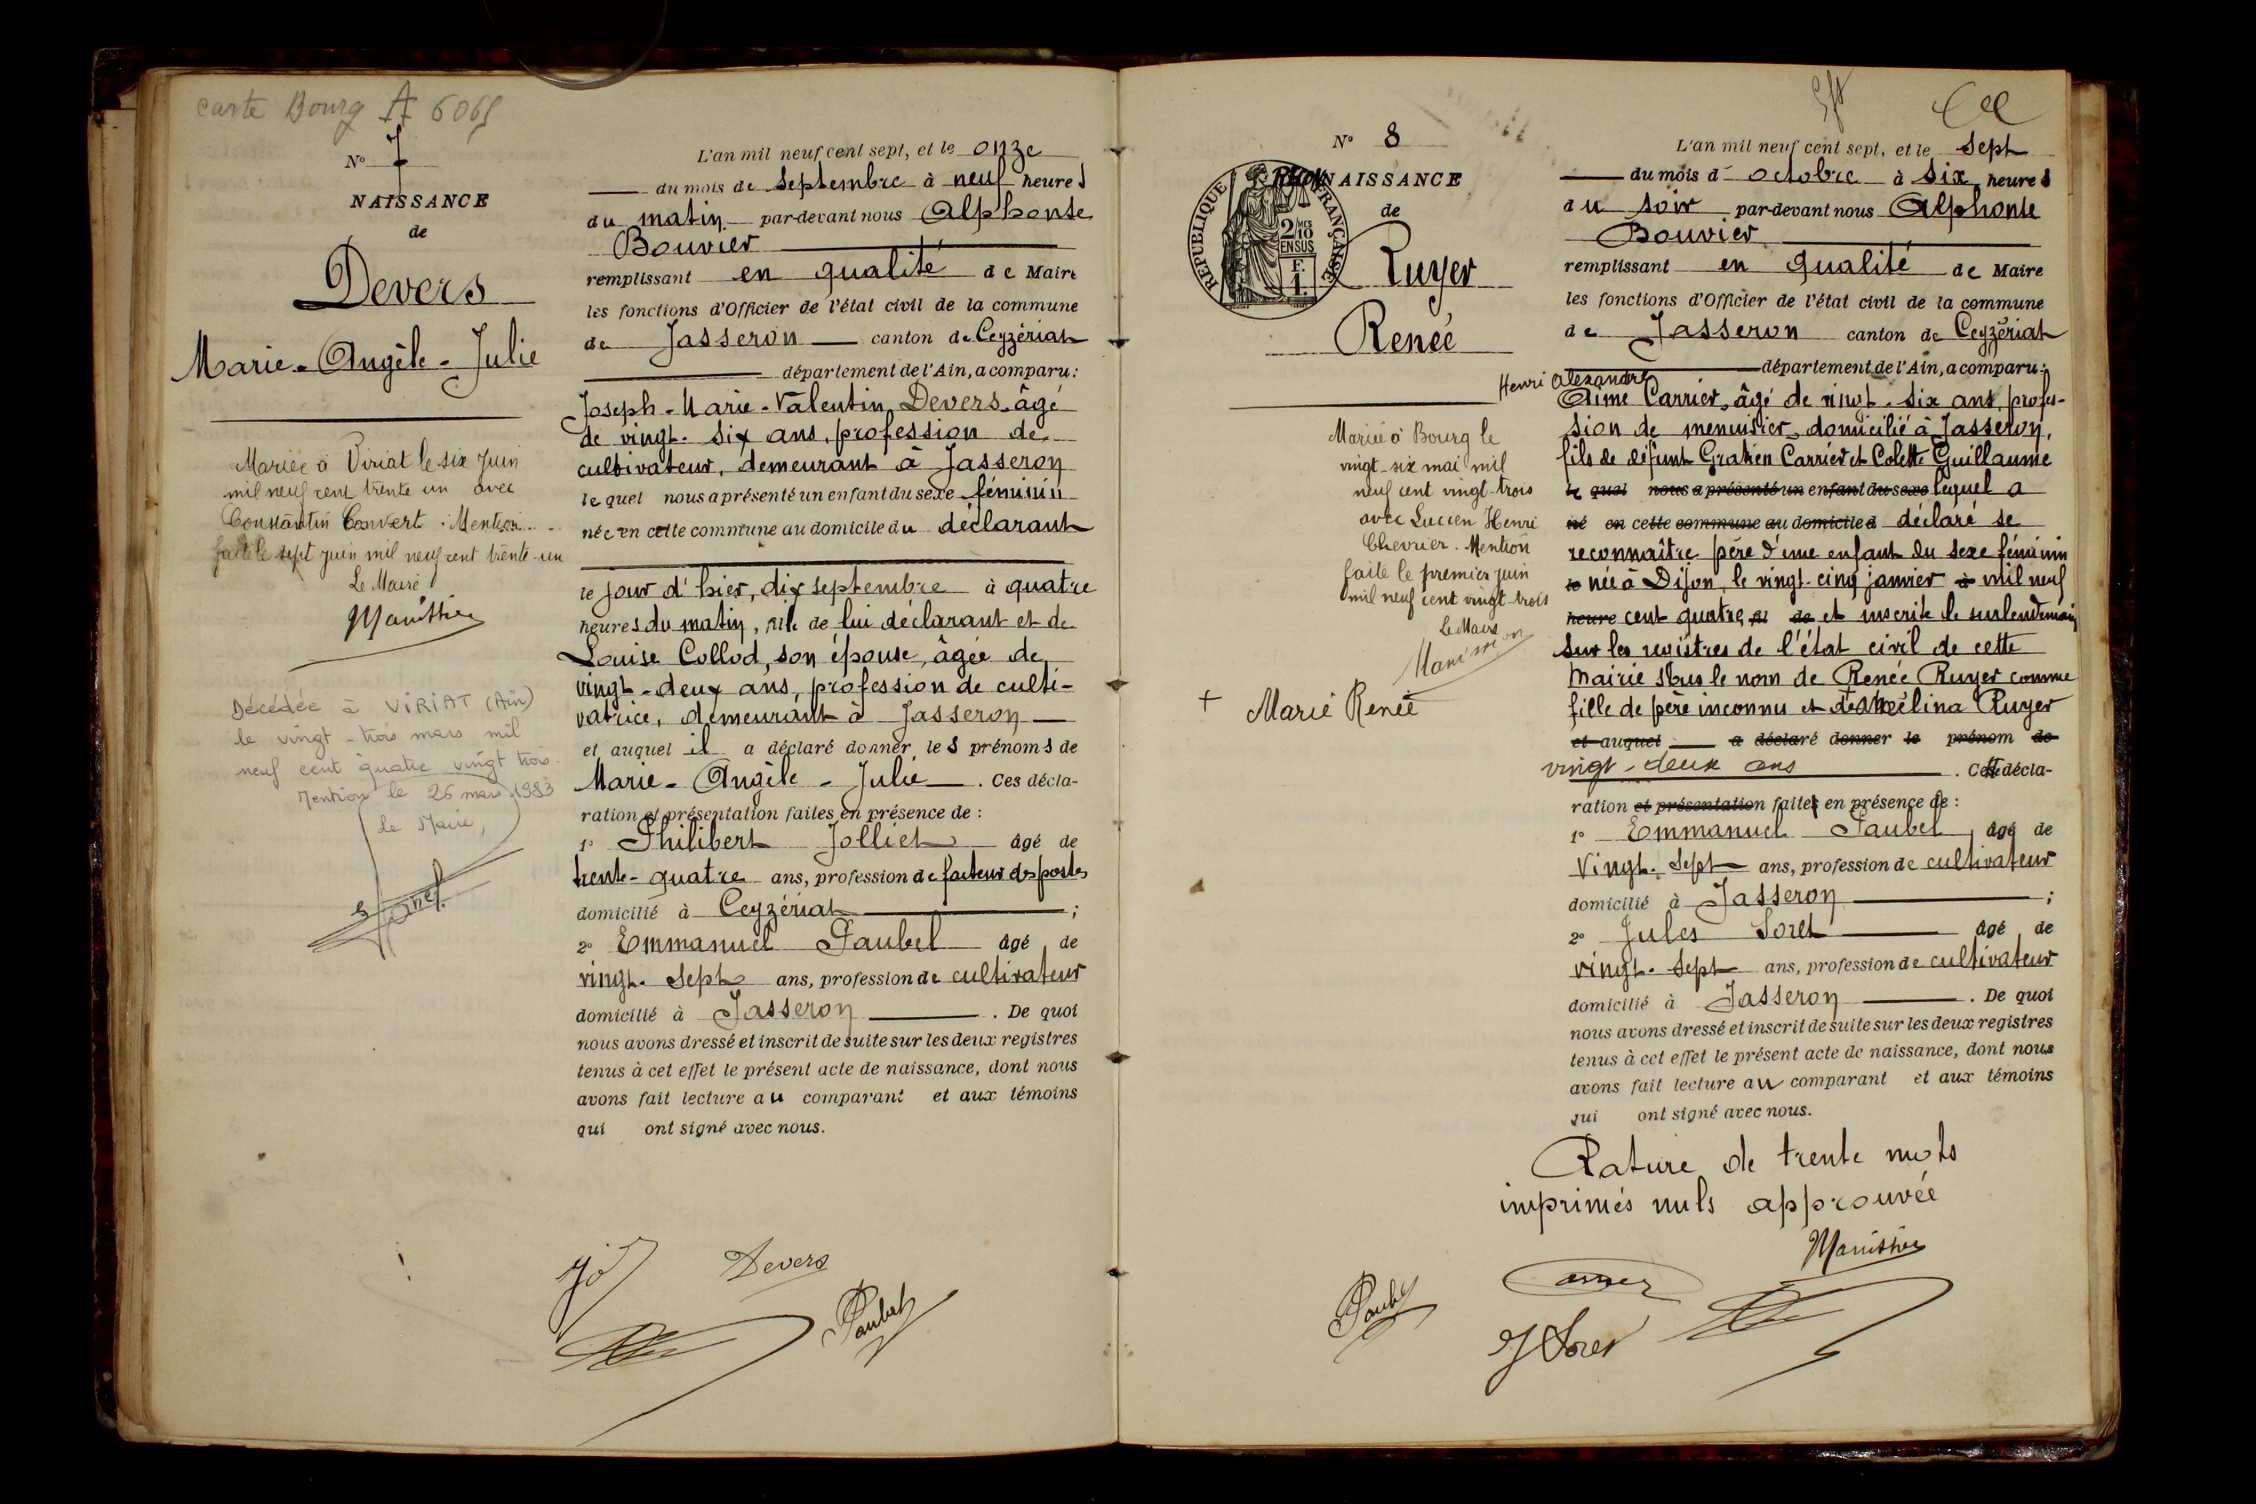 carte Bourg A 6065
N° 7
NAISSANCE
de
Devers
Marie-Angèle-Julie
Mariée à Viriat le six juin
mil neuf cent trente un avec
Constantin Convert. Mention
faite le sept juin mil neuf cent trente-un
Le Maire
Décédée à VIRIAT (Ain)
le vingt-trois mars mil
neuf cent quatre vingt trois.
Mention le 26 mars 1983
Le Maire,
L'an mil neuf cent sept, et le onze
du mois de septembre à neuf heures
du matin par-devant nous Alphonse
Bouvier
remplissant en qualité de Maire
les fonctions d'Officier de l'état civil de la commune
de Jasseron canton de Ceyzériat
département de l'Ain, a comparu:
Joseph-Marie-Valentin Devers, âgé
de vingt-six ans, profession de
cultivateur, demeurant à Jasseron
lequel nous a présenté un enfant du sexe féminin
née en cette commune au domicile du déclarant
le jour d'hier, dix septembre à quatre
heures du matin, fille de lui déclarant et de
Louise Collod, son épouse, âgée de
vingt-deux ans, profession de culti-
vatrice, demeurant à Jasseron
et auquel il a déclaré donner les prénoms de
Marie-Angèle-Julie. Ces décla-
ration et présentation faites en présence de :
1° Philibert Jolliet âgé de
trente-quatre ans, profession de facteur des postes
domicilié à Ceyzériat ;
2° Emmanuel Paubel âgé de
vingt-sept ans, profession de cultivateur
domicilié à Jasseron. De quoi
nous avons dressé et inscrit de suite sur les deux registres
tenus à cet effet le présent acte de naissance, dont nous
avons fait lecture au comparant et aux témoins
qui ont signé avec nous.
Devers
Paubel
N° 8
RECONNAISSANCE
de
RÉPUBLIQUE FRANÇAISE
2/10 EN SUS
Ruyer
Renée
Mariée à Bourg le
vingt-six mai mil
neuf cent vingt-trois
avec Lucien Henri
Chevrier. Mention
faite le premier juin
mil neuf cent vingt-trois
Le Maire
+ Marie Renée
L'an mil neuf cent sept, et le sept
du mois d'octobre à six heures
du soir par-devant nous Alphonse
Bouvier
remplissant en qualité de Maire
les fonctions d'Officier de l'état civil de la commune
de Jasseron canton de Ceyzériat
département de l'Ain, a comparu:
Henri Alexandre
Aimé Carrier, âgé de vingt-six ans, profes-
sion de menuisier, domicilié à Jasseron,
fils de défunt Gratien Carrier et Colette Guillaume
le quel nous a présenté un enfant du sexe lequel a
né en cette commune au domicile d déclaré se
reconnaître père d'une enfant du sexe féminin
le née à Dijon, le vingt-cinq janvier à mil neuf
heure cent quatre, fil de et inscrite le surlendemain
sur les registres de l'état civil de cette
mairie sous le nom de Renée Ruyer comme
fille de père inconnu et de Mélina Ruyer
et auquel a déclaré donner le prénom de
vingt-deux ans. Cette décla-
ration et présentation faites en présence de :
1° Emmanuel Paubel âgé de
Vingt-sept ans, profession de cultivateur
domicilié à Jasseron ;
2° Jules Soret âgé de
vingt-sept ans, profession de cultivateur
domicilié à Jasseron. De quoi
nous avons dressé et inscrit de suite sur les deux registres
tenus à cet effet le présent acte de naissance, dont nous
avons fait lecture au comparant et aux témoins
qui ont signé avec nous.
Rature de trente mots
imprimés nuls approuvée
Paubel
J Soret